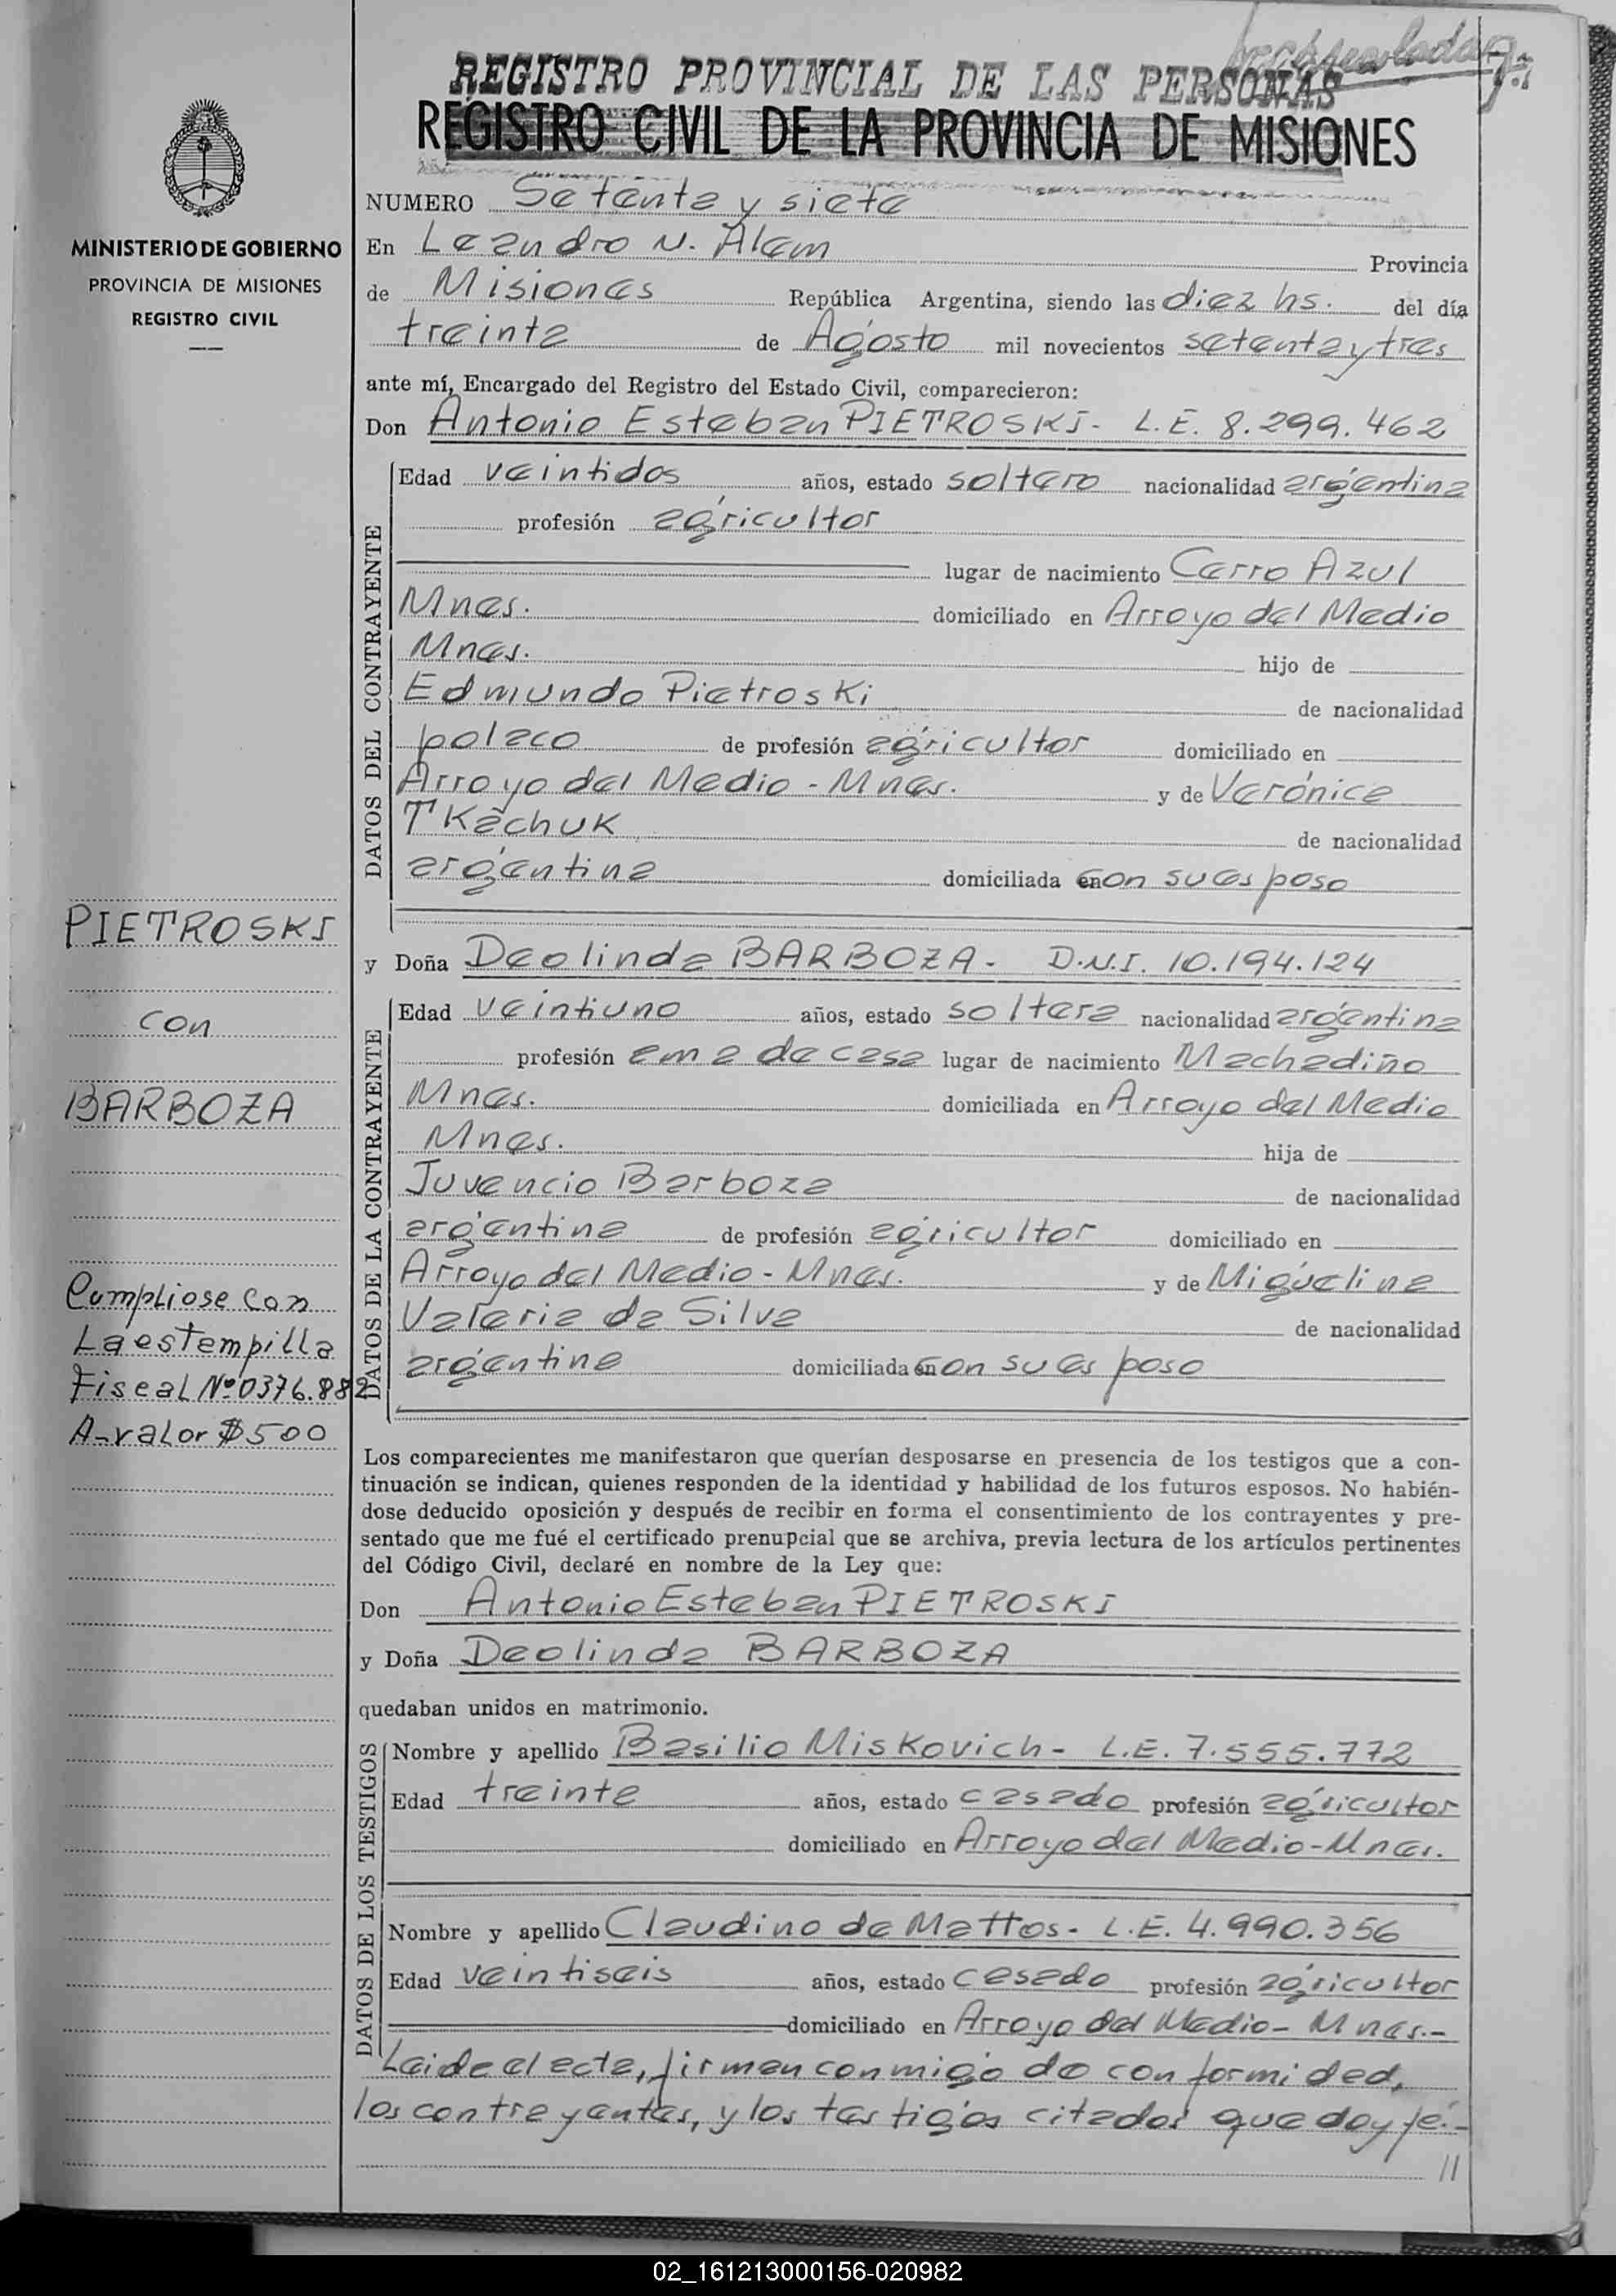 REGISTRO PROVINCIAL DE LAS PERSONAS
REGISTRO CIVIL DE LA PROVINCIA DE MISIONES
MINISTERIO DE GOBIERNO
PROVINCIA DE MISIONES
REGISTRO CIVIL
NUMERO Setenta y siete
En Leandro N. Alem Provincia
de Misiones República Argentina, siendo las diez hs. del día
treinta de Agosto mil novecientos setenta y tres
ante mí, Encargado del Registro del Estado Civil, comparecieron:
Don Antonio Esteban PIETROSKI - L.E. 8.299.462
DATOS DEL CONTRAYENTE
Edad veintidos años, estado soltero nacionalidad argentina
profesión agricultor
lugar de nacimiento Cerro Azul
Mnes. domiciliado en Arroyo del Medio
Mnes. hijo de
Edmundo Pietroski de nacionalidad
polaco de profesión agricultor domiciliado en
Arroyo del Medio - Mnes. y de Verónica
TKachuk de nacionalidad
argentina domiciliada en con su esposo
PIETROSKI
con
BARBOZA
y Doña Deolinda BARBOZA - D.N.I. 10.194.124
DATOS DE LA CONTRAYENTE
Edad veintiuno años, estado soltera nacionalidad argentina
profesión ama de casa lugar de nacimiento Machadiño
Mnes. domiciliada en Arroyo del Medio
Mnes. hija de
Juvencio Barboza de nacionalidad
argentina de profesión agricultor domiciliado en
Arroyo del Medio - Mnes. y de Miguelina
Valeria da Silva de nacionalidad
argentina domiciliada en con su esposo
Cumpliose con
La estempilla
Fiscal Nº 0376.882
A-valor $500
Los comparecientes me manifestaron que querían desposarse en presencia de los testigos que a con-
tinuación se indican, quienes responden de la identidad y habilidad de los futuros esposos. No habién-
dose deducido oposición y después de recibir en forma el consentimiento de los contrayentes y pre-
sentado que me fué el certificado prenupcial que se archiva, previa lectura de los artículos pertinentes
del Código Civil, declaré en nombre de la Ley que:
Don Antonio Esteban PIETROSKI
y Doña Deolinda BARBOZA
quedaban unidos en matrimonio.
DATOS DE LOS TESTIGOS
Nombre y apellido Basilio Miskovich - L.E. 7.555.772
Edad treinta años, estado casado profesión agricultor
domiciliado en Arroyo del Medio - Mnes.
Nombre y apellido Claudino de Mattos - L.E. 4.990.356
Edad veintiseis años, estado casado profesión agricultor
domiciliado en Arroyo del Medio - Mnes.-
Leida el acta, firman conmigo de conformidad,
los contrayentes, y los testigos citados que doy fé.-
//
02_161213000156-020982